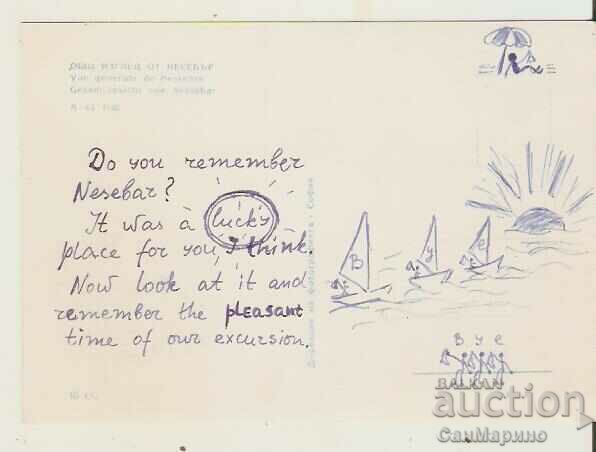 ОБЩ ИЗГЛЕД ОТ НЕСЕБЪР
Vue générale de Nessebre
Gesamtansicht von Nessebar
Do you remember
Nesebar?
It was a lucky
place for you, I think.
Now look at it and
remember the pleasant
time of our excursion.
B y e
B y e
BALKAN
auction
СанМарино